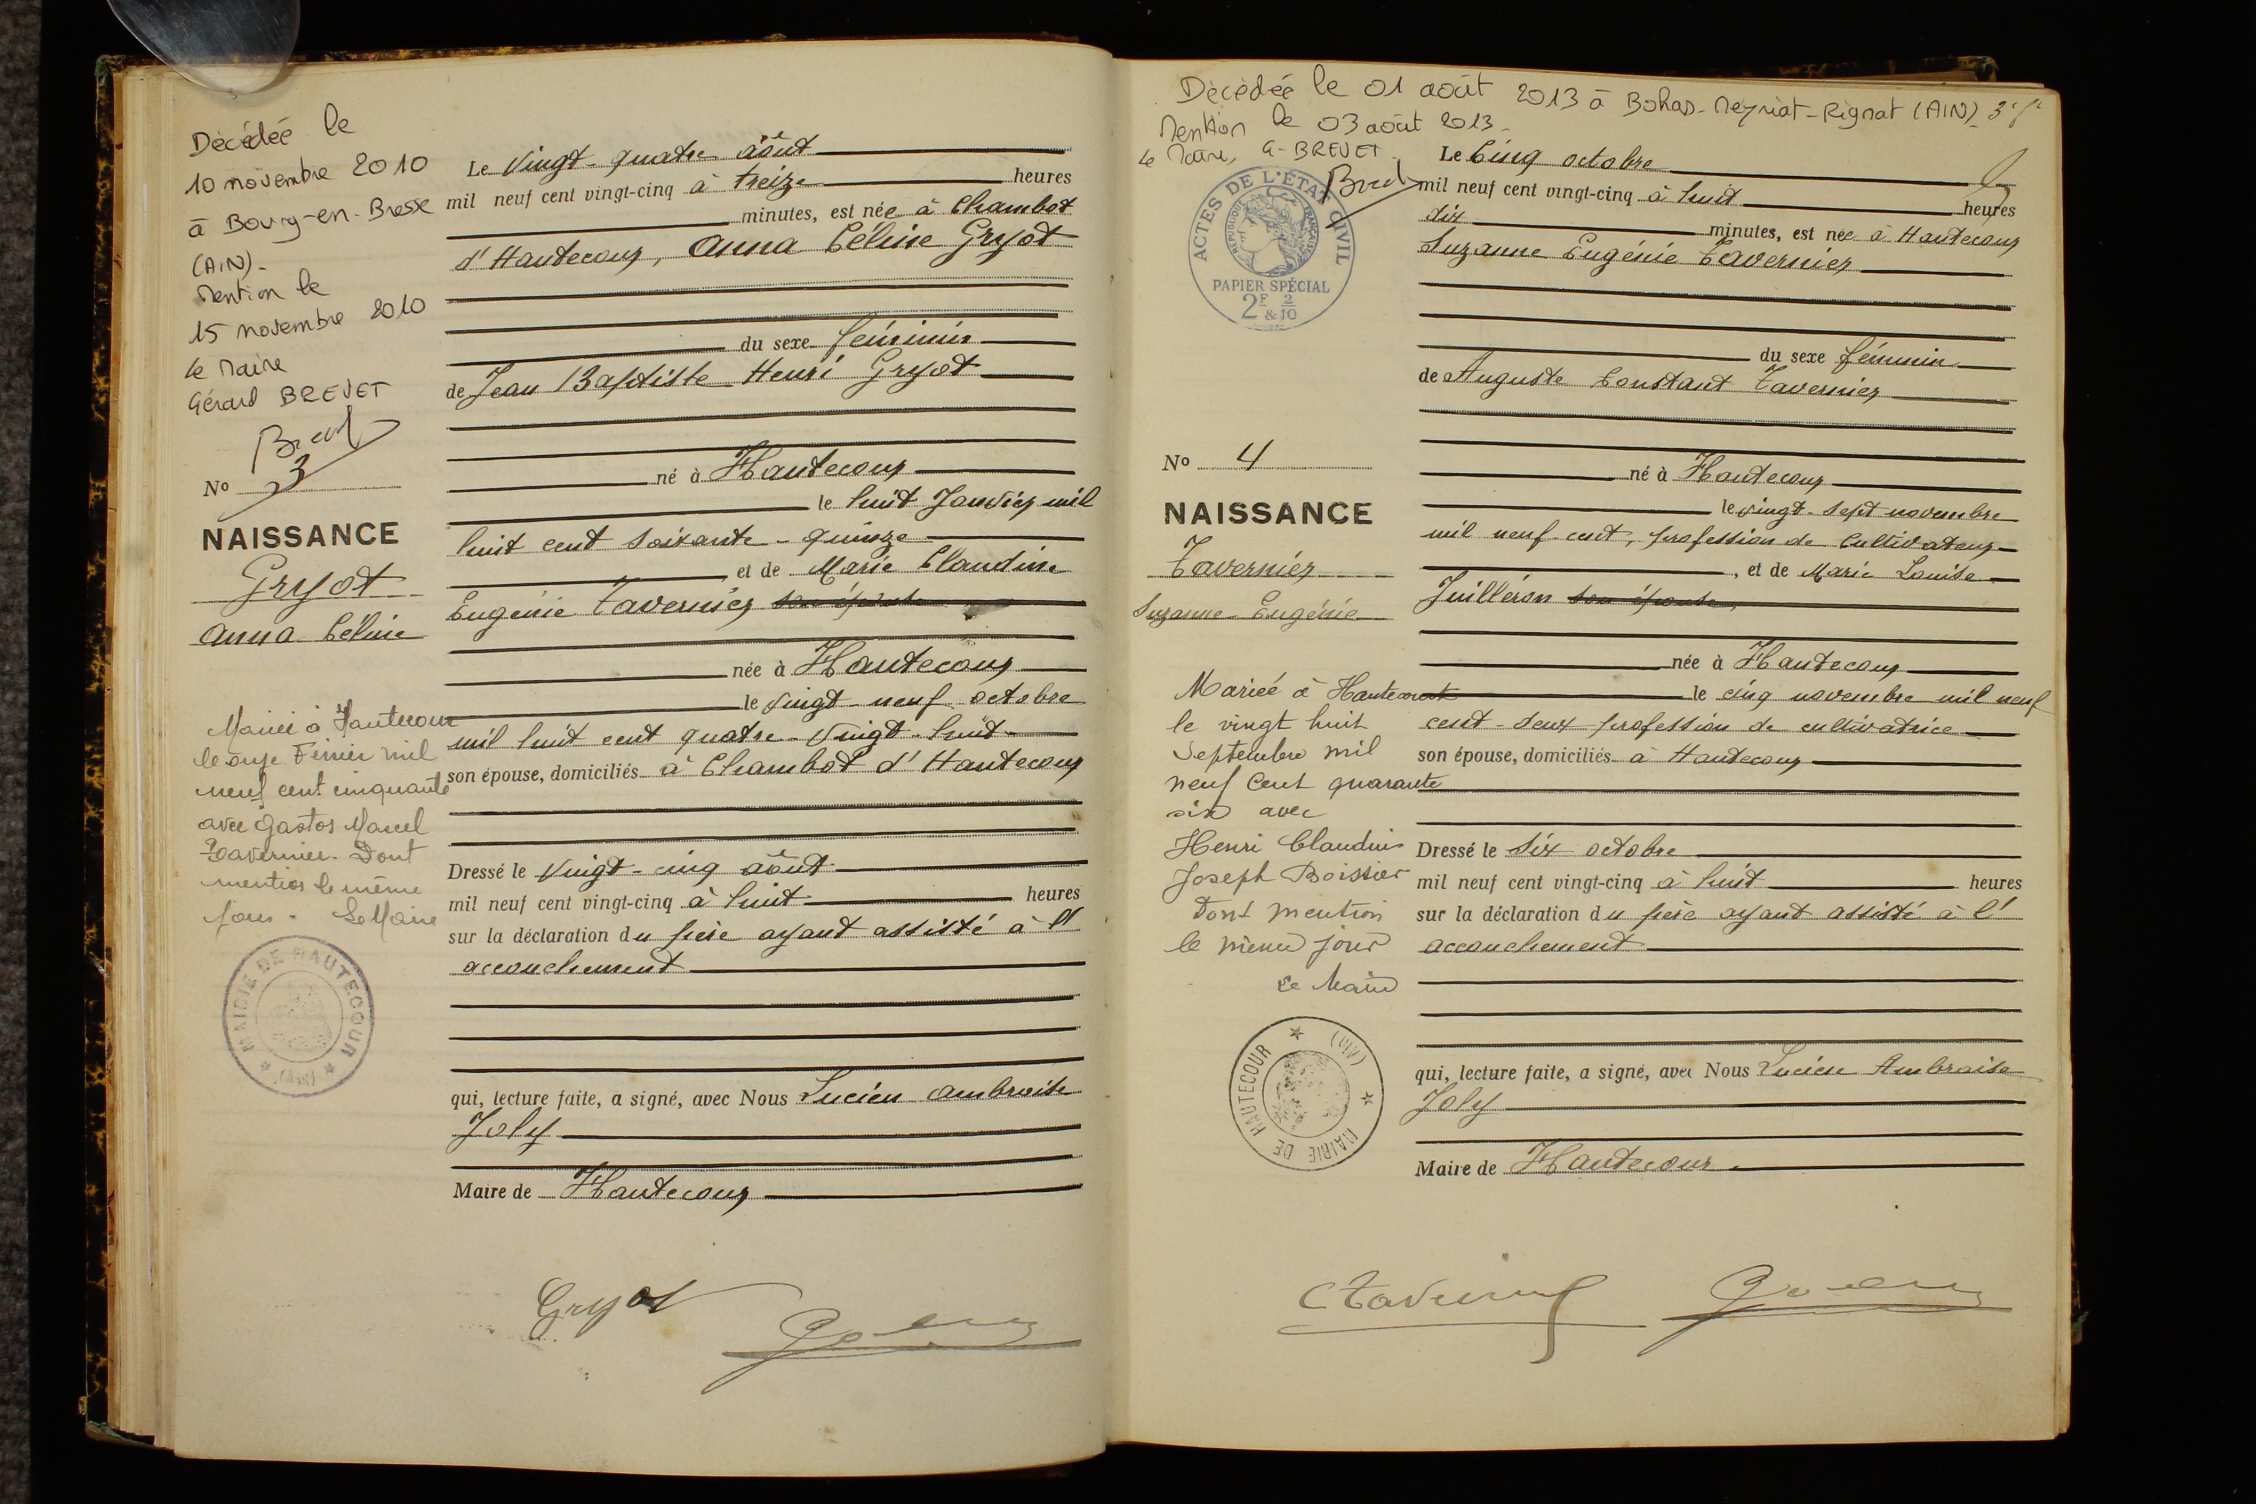 Décédée le
10 novembre 2010
à Bourg-en-Bresse
(AIN)-
Mention le
15 novembre 2010
le Maire
Gérard BREVET
No 3
NAISSANCE
Gryot
Anna Céline
Mariée à Hautecour
le onze Février mil
neuf cent cinquante
avec Gaston Marcel
Tavernier. Dont
mention le même
jour. Le Maire
MAIRIE DE HAUTECOUR
(AIN)
Le Vingt-quatre août
mil neuf cent vingt-cinq à treize heures
minutes, est née à Chambot
d'Hautecour, Anna Céline Gryot
du sexe féminin
de Jean Baptiste Henri Gryot
né à Hautecour
le huit Janvier mil
huit cent soixante-quinze
et de Marie Claudine
Eugénie Tavernier son épouse
née à Hautecour
le vingt-neuf octobre
mil huit cent quatre-vingt-huit
son épouse, domiciliés à Chambot d'Hautecour
Dressé le vingt-cinq août
mil neuf cent vingt-cinq à huit heures
sur la déclaration du père ayant assisté à l'
accouchement
qui, lecture faite, a signé, avec Nous Lucien Ambroise
Joly
Maire de Hautecour
Gryot
Décédée le 01 août 2013 à Bohas-Meyriat-Rignat (AIN)
Mention le 03 août 2013.
Le Maire, G. BREVET
ACTES DE L'ÉTAT CIVIL
RÉPUBLIQUE FRANÇAISE
PAPIER SPÉCIAL
2F & 2/10
No 4
NAISSANCE
Tavernier
Suzanne Eugénie
Mariée à Hautecourt
le vingt huit
Septembre mil
neuf Cent quarante
six avec
Henri Claudius
Joseph Boissier
Dont mention
le même jour
Le Maire
MAIRIE DE HAUTECOUR
(AIN)
Le Cinq octobre
mil neuf cent vingt-cinq à huit heures
dix minutes, est née à Hautecour
Suzanne Eugénie Tavernier
du sexe féminin
de Auguste Constant Tavernier
né à Hautecour
le vingt-sept novembre
mil neuf cent, profession de Cultivateur
, et de Marie Louise
Juilléron son épouse
née à Hautecour
le cinq novembre mil neuf
cent-deux profession de cultivatrice
son épouse, domiciliés à Hautecour
Dressé le Six octobre
mil neuf cent vingt-cinq à huit heures
sur la déclaration du père ayant assisté à l'
accouchement
qui, lecture faite, a signé, avec Nous Lucien Ambroise
Joly
Maire de Hautecour